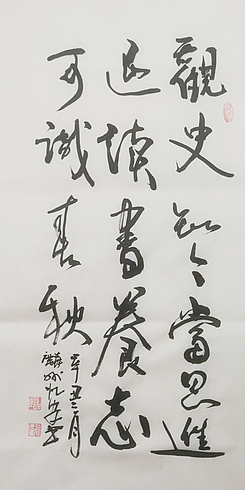 觀史知今當思進
退讀書養志
可識春秋
辛丑月
書